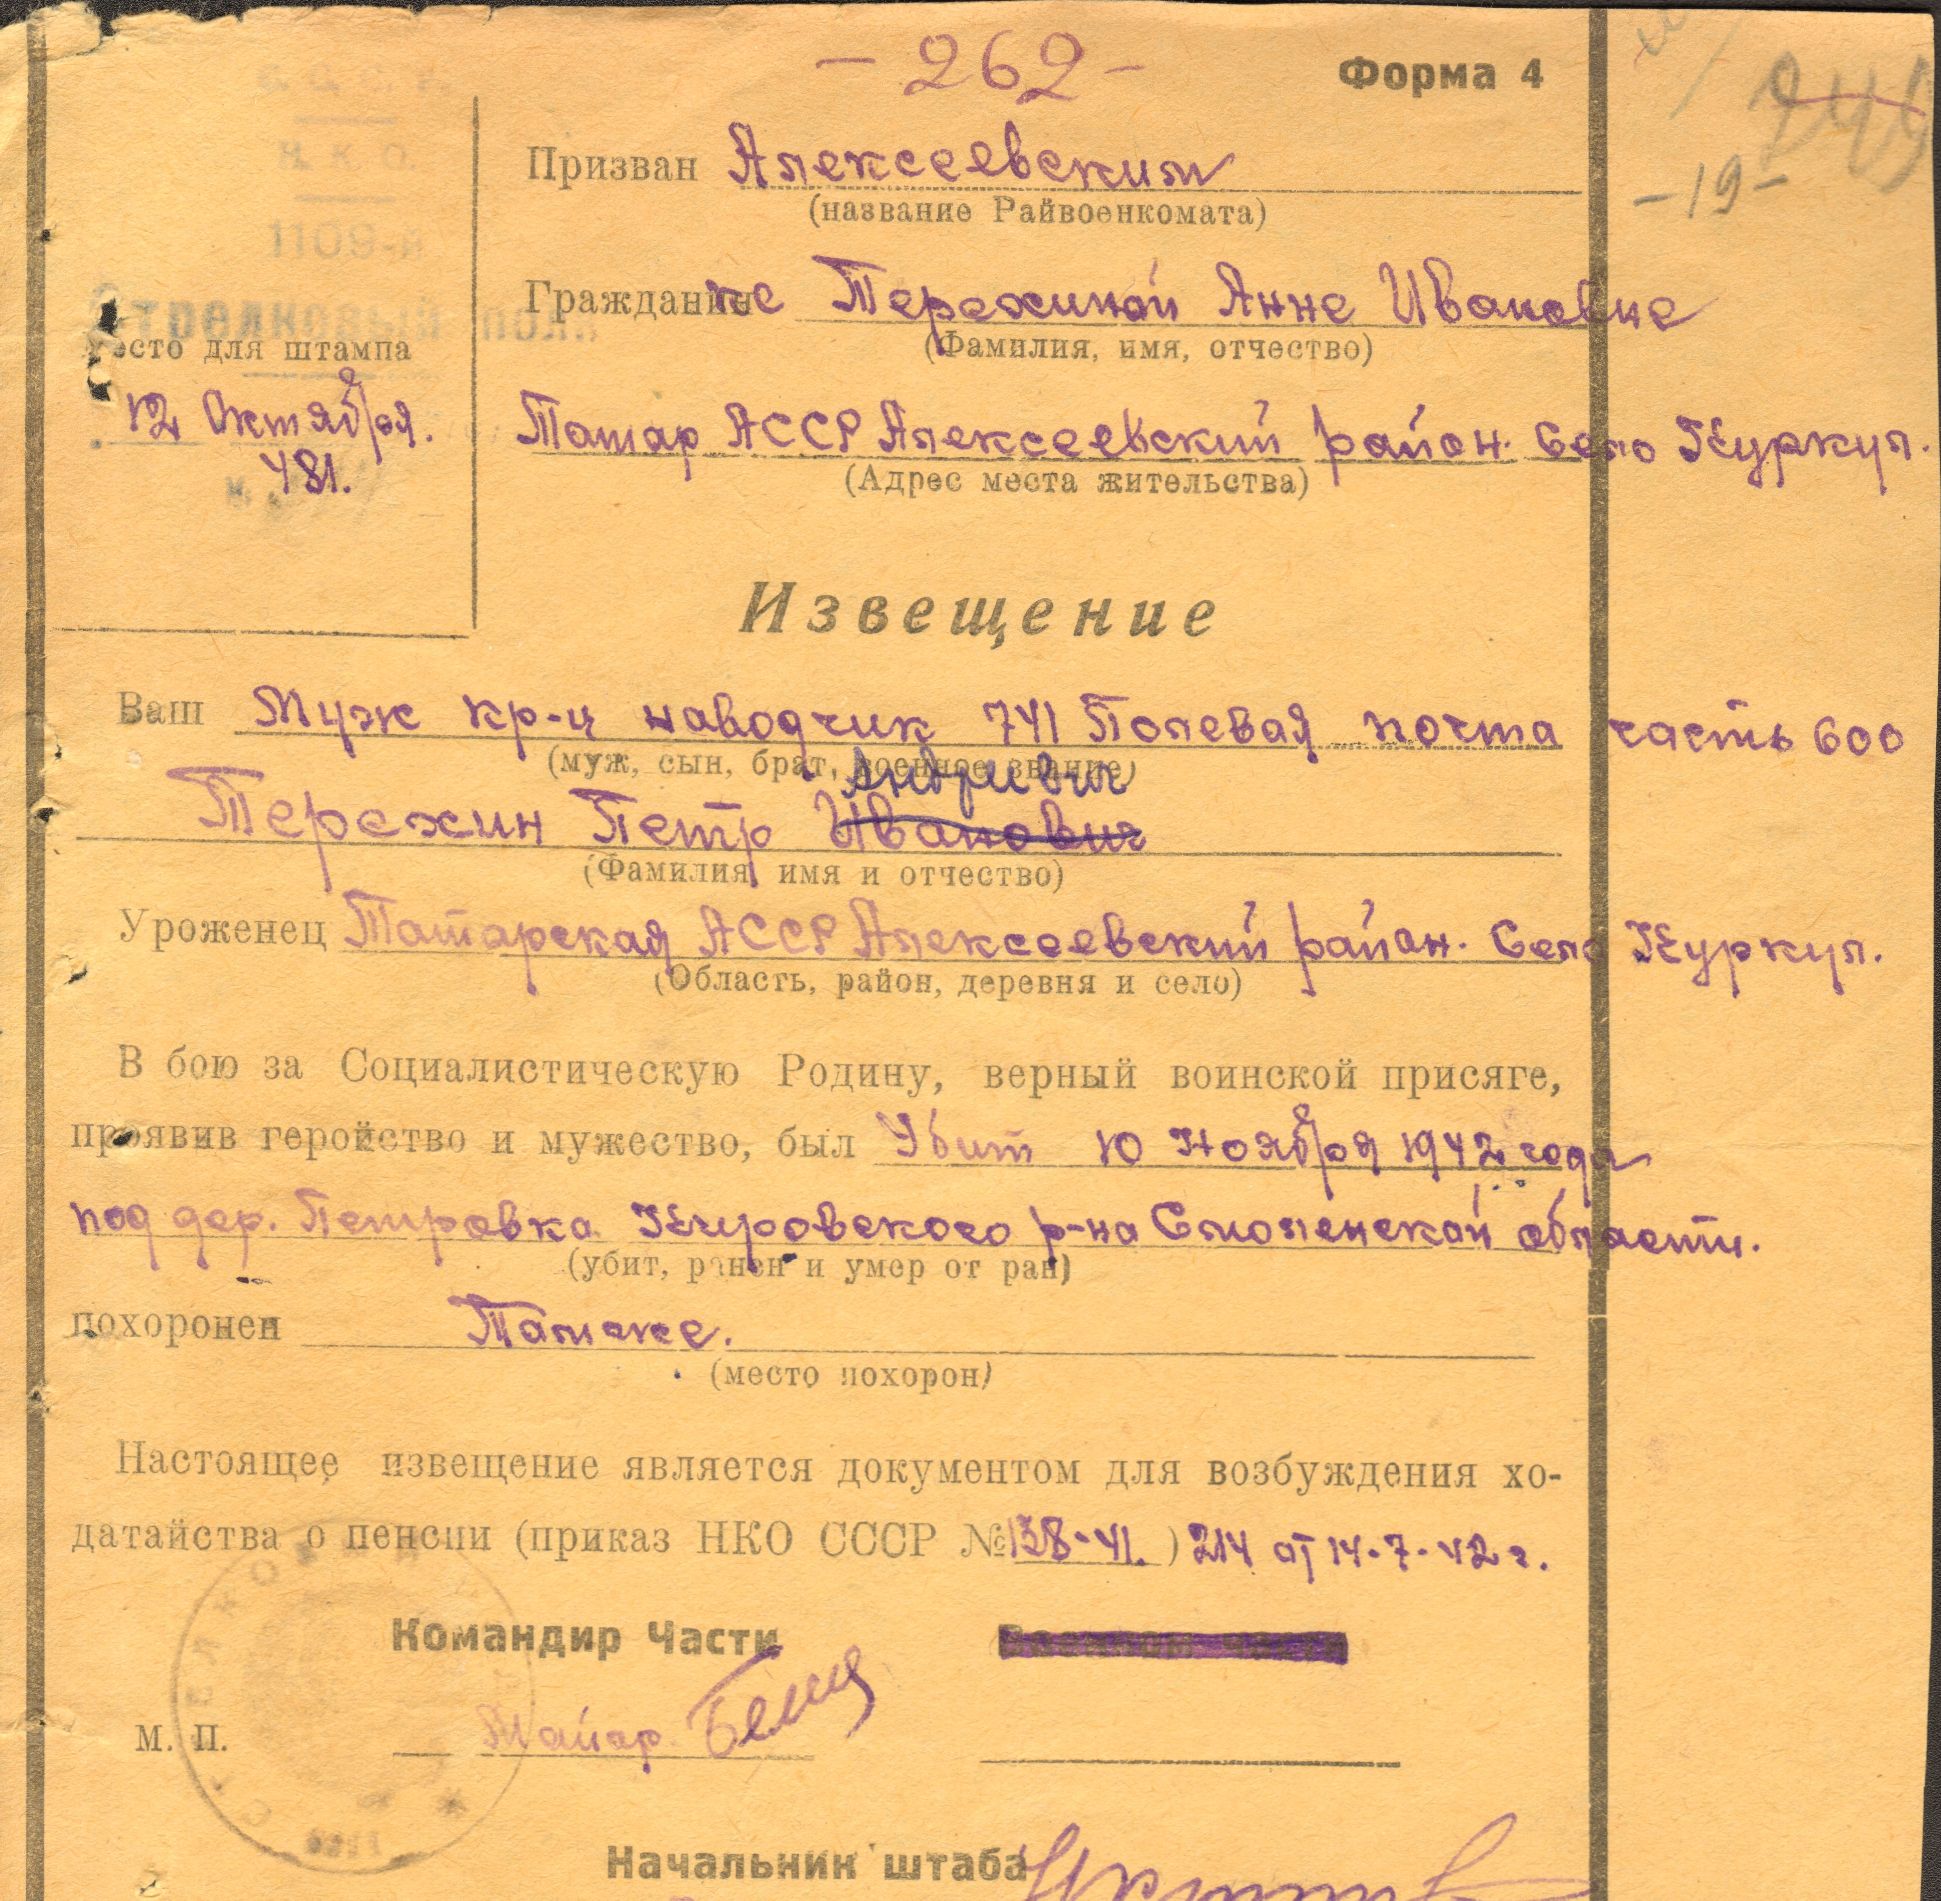 - 262 -
Форма 4
249
- 19 -
Н. К. О.
1109-й
Стрелковый полк
Место для штампа
12 Октября.
481.
Призван Алексеевским
(название Райвоенкомата)
Гражданине Терехиной Анне Ивановне
(Фамилия, имя, отчество)
Татар АССР Алексеевский район. Село Куркул.
(Адрес места жительства)
Извещение
Ваш Муж кр-ц наводчик 741 Полевая почта часть 600
(муж, сын, брат, военное звание)
Андриевич
Терехин Петр Иванович
(Фамилия, имя и отчество)
Уроженец Татарская АССР Алексеевский район. Село Куркул.
(Область, район, деревня и село)
В бою за Социалистическую Родину, верный воинской присяге,
проявив геройство и мужество, был Убит 10 Ноября 1942 года
под дер. Петровка Кировского р-на Смоленской области.
(убит, ранен и умер от ран)
похоронен Тамже.
(место похорон)
Настоящее извещение является документом для возбуждения хо-
датайства о пенсии (приказ НКО СССР № 138-41.) 214 от 14-7-42 г.
Командир Части Военком части
М. П. Майор
Начальник штаба